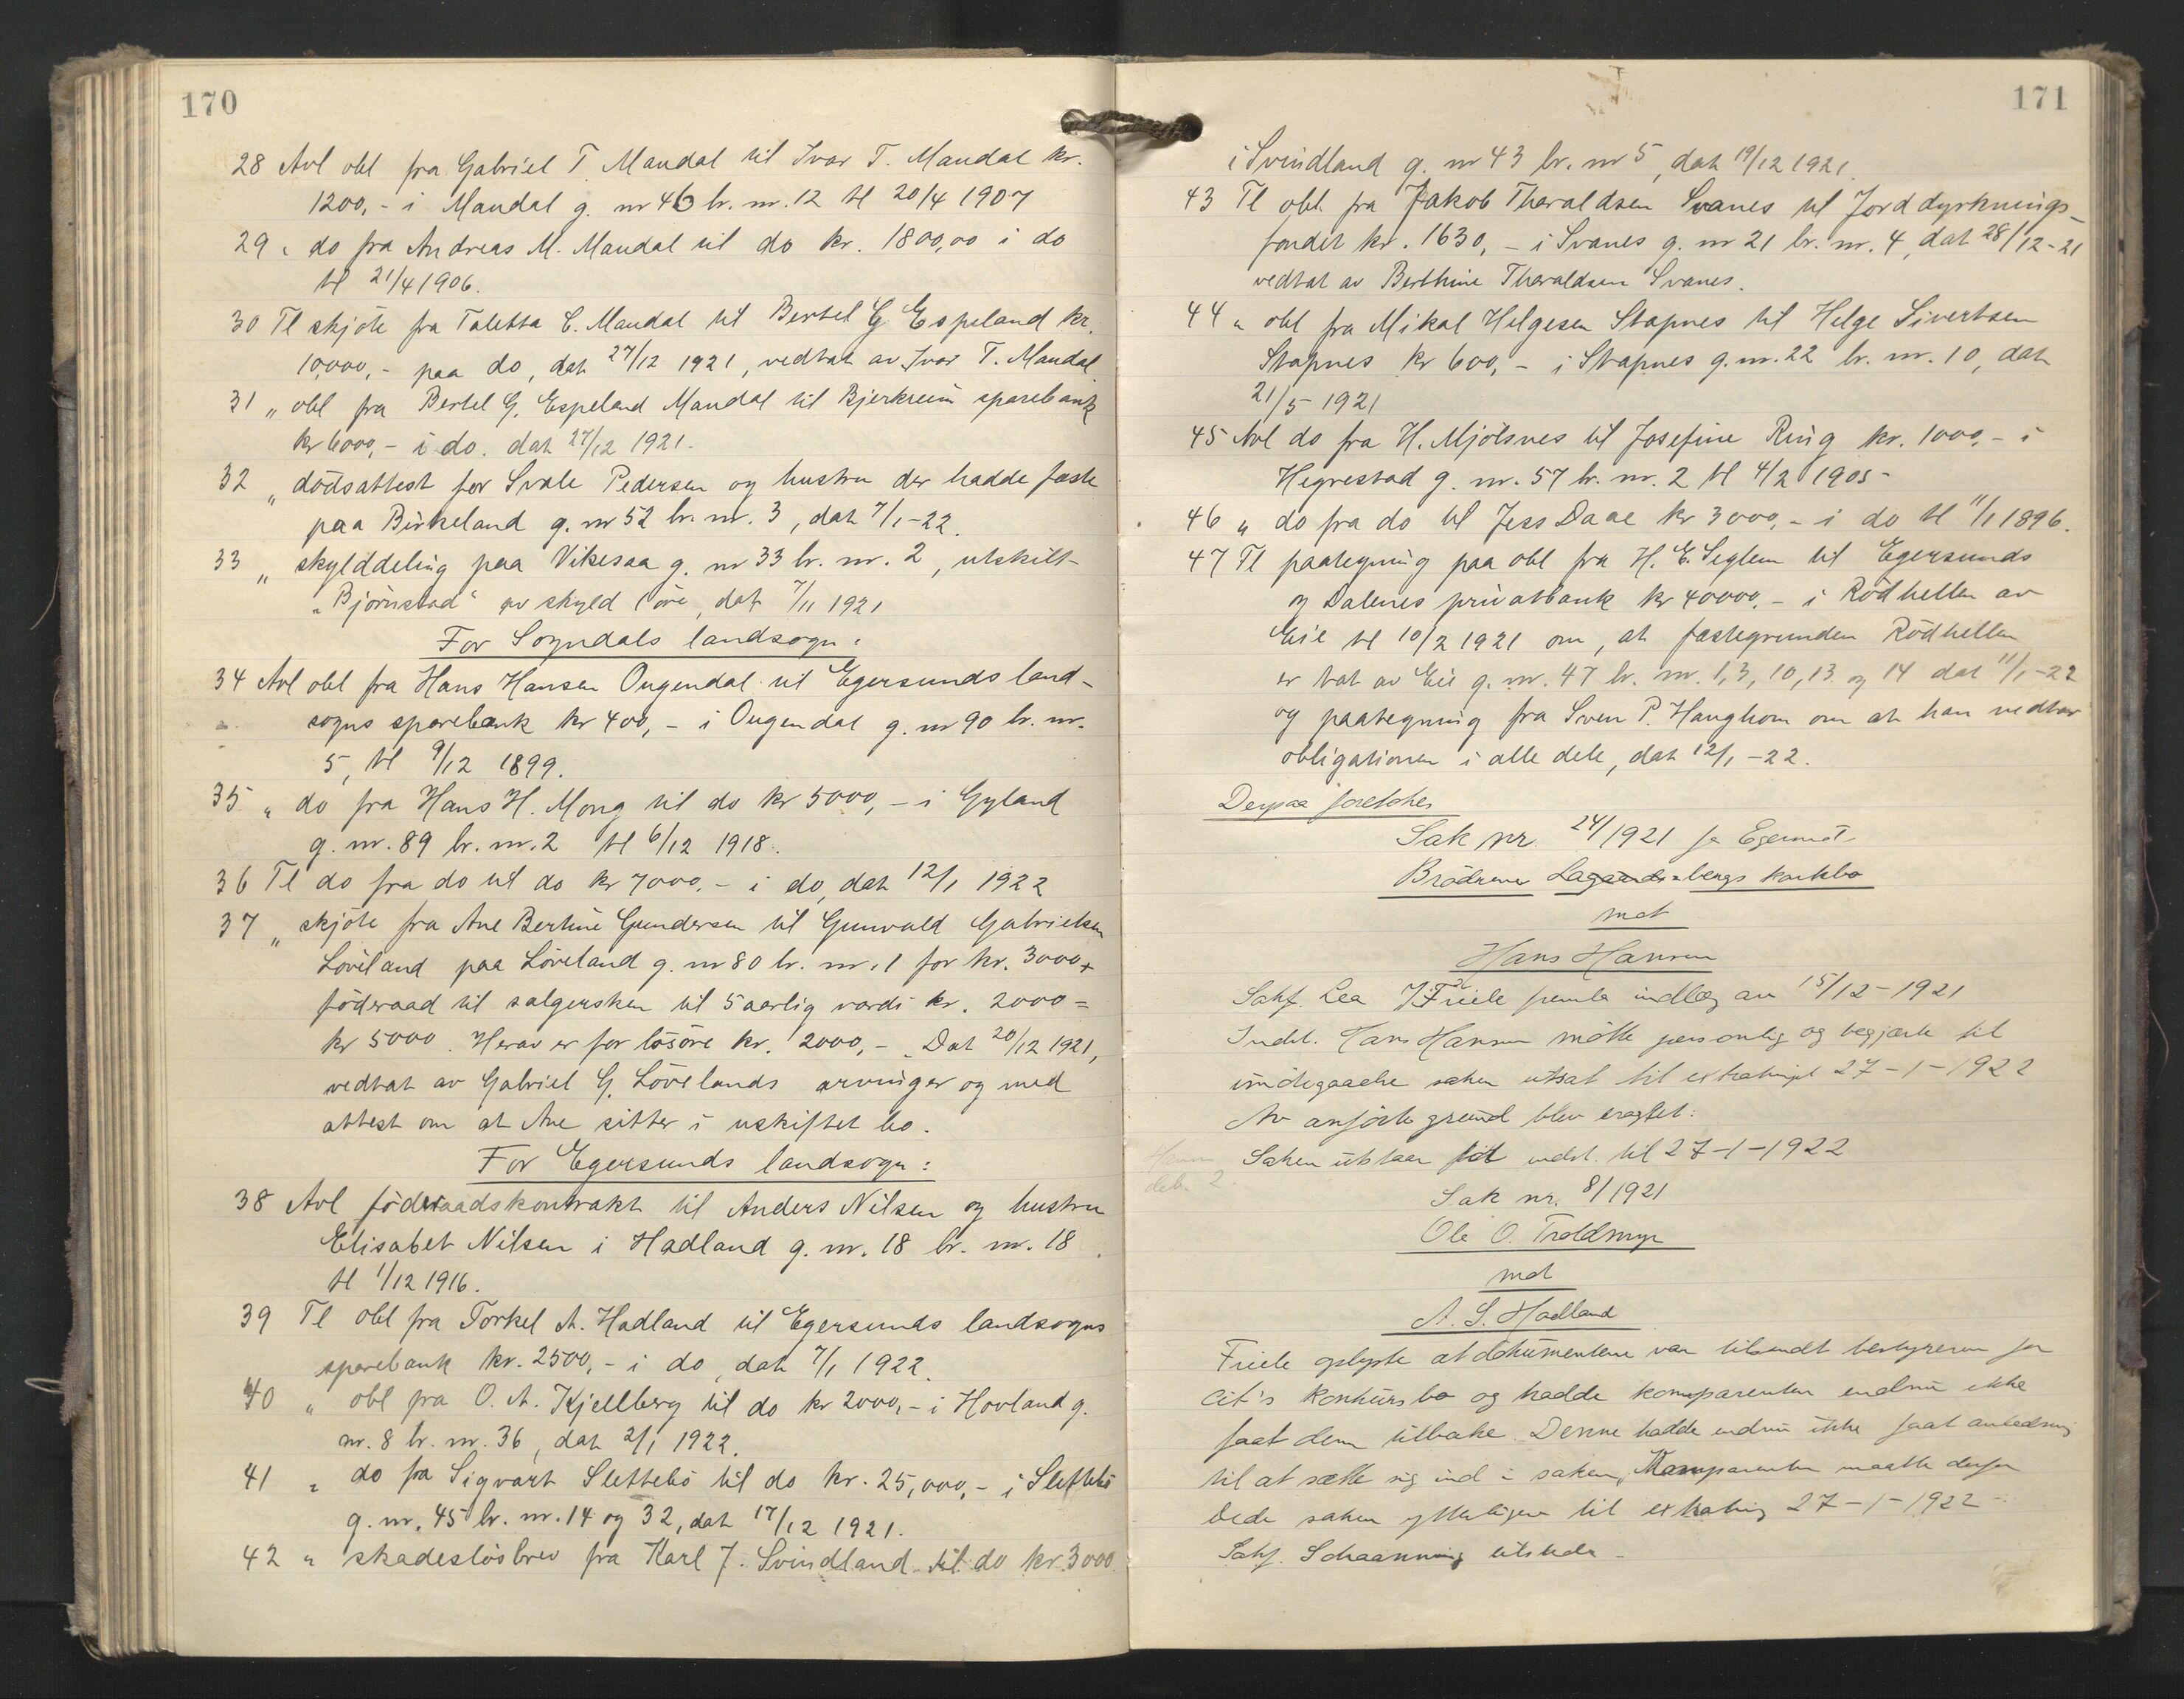 170
28 Avl obl fra Gabriel T. Maudal til Ivar T. Maudal kr.
1200,- i Maudal g. nr 46 br. nr. 12 tl 20/4 1907
29 " do fra Andreas M. Maudal til do kr. 1800,00 i do
tl 21/4 1906.
30 Tl skjöte fra Taletta C. Maudal til Bertel G Espeland kr.
10,000,- paa do, dat 27/12 1921, vedtat av Ivar T. Maudal.
31 " obl fra Bertel G. Espeland Maudal til Bjerkreim sparebank
kr 6000,- i do. dat 27/12 1921.
32 " dödsattest for Svale Pedersen og hustru der hadde fæste
paa Birkeland g. nr 52 br. nr. 3, dat 7/1-22.
33 " skylddeling paa Vikesaa g. nr 33 br. nr. 2, utskilt
"Bjørnstad" av skyld 1 øre, dat 7/11 1921
For Sogndals landsogn:
34 Avl obl fra Hans Hansen Ougendal til Egersunds land-
sogns sparebank kr 400,- i Ougendal g. nr 90 br. nr.
5, tl 9/12 1899.
35 " do fra Hans H. Mong til do kr 5000,- i Gyland
g. nr. 89 br. nr. 2 tl 6/12 1918.
36 Tl do fra do til do kr 7000.- i do, dat 12/1 1922
37 " skjöte fra Ane Bertine Gundersen til Gunvald Gabrielsen
Löveland paa Löveland g. nr 80 br. nr. 1 for kr. 3000 +
föderaad til sælgersken til 5 aarlig værdi kr. 2000 =
kr 5000. Herav er for lösöre kr. 2000,-. Dat 20/12 1921,
vedtat av Gabriel G. Lövelands arvinger og med
attest om at Ane sitter i uskiftet bo.
For Egersunds landsogn:
38 Avl föderaadskontrakt til Anders Nilsen og hustru
Elisabet Nilsen i Hadland g. nr. 18 br. nr. 18.
tl 1/12 1916.
39 Tl obl fra Torkel A. Hadland til Egersunds landsogns
sparebank kr. 2500,- i do, dat 7/1 1922.
40 " obl fra O. A. Kjellberg til do kr 2000,- i Hovland g.
nr. 8 br. nr. 36, dat 2/1 1922.
41 " do fra Sigvart Slettebö til do kr. 25,000,- i Slettebö
g. nr. 45 br. nr. 14 og 32, dat 17/12 1921.
42 " skadeslösbrev fra Karl J. Svindland til do kr. 3000
171
i Svindland g. nr 43 br. nr 5, dat 19/12 1921.
43 Tl obl fra Jakob Tharaldsen Svanes til Jorddyrknings-
fondet kr. 1630,- i Svanes g. nr 21 br. nr. 4, dat 28/12-21
vedtat av Berthine Tharaldsen Svanes.
44 " obl fra Mikal Helgesen Stapnes til Helge Sivertsen
Stapnes kr 600,- i Stapnes g. nr. 22 br. nr. 10, dat
21/5 1921
45 Avl do fra H. Mjölsnes til Josefine Ring kr. 1000,- i
Hegrestad g. nr. 57 br. nr. 2 tl 4/2 1905-
46 " do fra do til Jess Daae kr 3000,- i do tl 11/1 1896.
47 Tl paategning paa obl fra H. E. Seglem til Egersunds
og Dalenes privatbank kr 40000,- i Rödhellen av
Eie tl 10/2 1921 om, at fæstegrunden Rödhellen
er tat av Eie g. nr. 47 br. nr. 1, 3, 10, 13 og 14 dat 11/1-22
og paategning fra Sven P. Haughom om at han vedtar
obligationen i alle dele, dat 12/1-22.
Derpaa foretokes
Sak nr. 24/1921
Brödrene
mot
Hans Hansen
Sakf. Lea Friele fremla indlæg av 15/12-1921
Indst. Hans Hansen mötte personlig og begjærte til
imötegaaelse saken utsat til extrating 27-1-1922
Av anförte grund blev eragtet:
Saken utstaar til 27-1-1922
Sak nr. 8/1921
Ole O. Troldmyr
mot
A. S. Hadland
Friele oplyste at dokumentene var tilsendt bestyreren for
cit's konkursbo og hadde komparenten endnu ikke
faat dem tilbake. Denne hadde endnu ikke faat anledning
til at sætte sig ind i saken, Komparenten maatte derfor
bede saken ytterligere til extrating 27-1-1922-
Sakf. Schaanning tilstede-